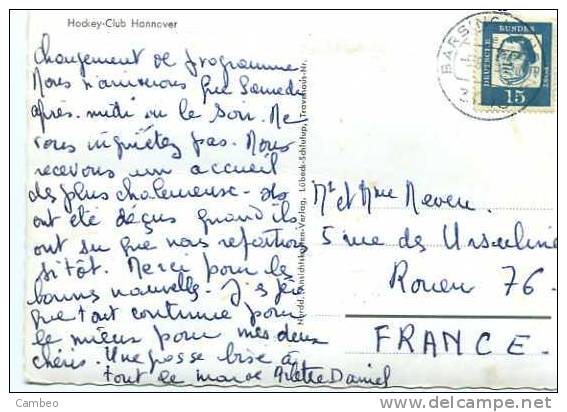 Hockey-Club Hannover
Changement de programme
Nous n'arriverons que Samedi
après-midi ou le soir. Ne
vous inquiétez pas. Nous
recevons un accueil
des plus chaleureux - ils
ont été déçus quand ils
ont su que nous repartions
si tôt. Merci pour les
bonnes nouvelles. J'espère
que tout continue pour
le mieux pour mes deux
chéris. Une grosse bise à
tout le monde Daniel
Nordd. Ansichtskarten-Verlag, Lübeck-Schlutup, Travehaus-Nr.
BARSING
DEUTSCHE BUNDES
15
Mr et Mme Neveu.
5 rue des Ursulines
Rouen 76.
FRANCE.
© Cambeo
delcampe.net